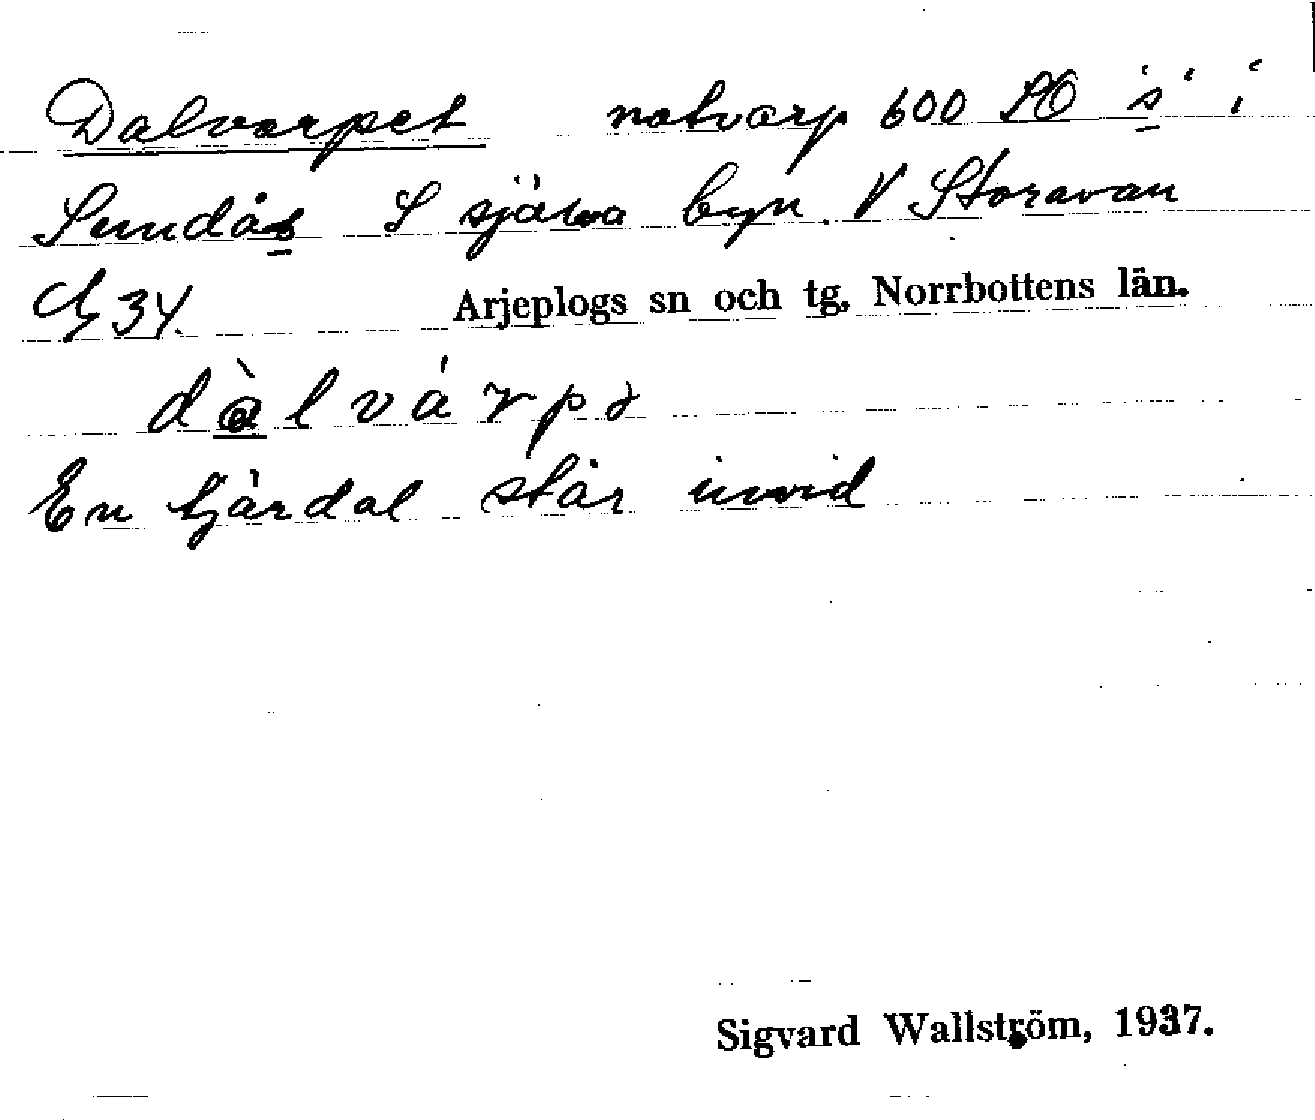 Dalvarpet notvarp 600 SO s i
Sundås S själva byn. V Storavan
34.
Arjeplogs sn och tg, Norrbottens län.
dàlvárpə
En tjärdal står invid
Sigvard Wallström, 1937.